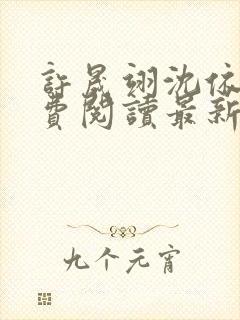 許晟翊沈依
費閱讀最新
九个元宵